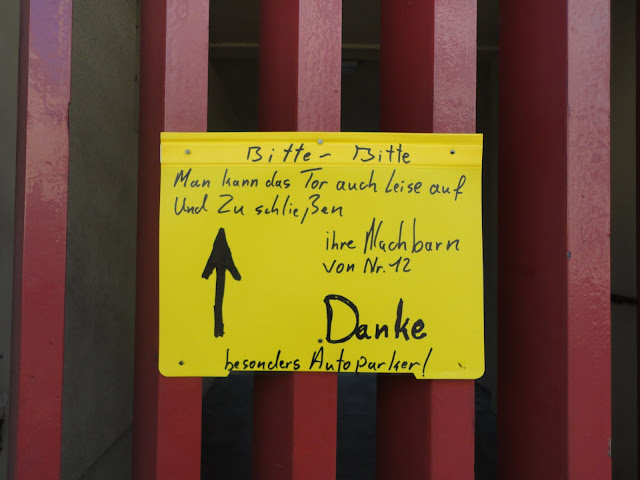 Bitte - Bitte
Man kann das Tor auch Leise auf
Und Zu schließen
ihre Nachbarn
von Nr. 12
Danke
besonders Autoparker!